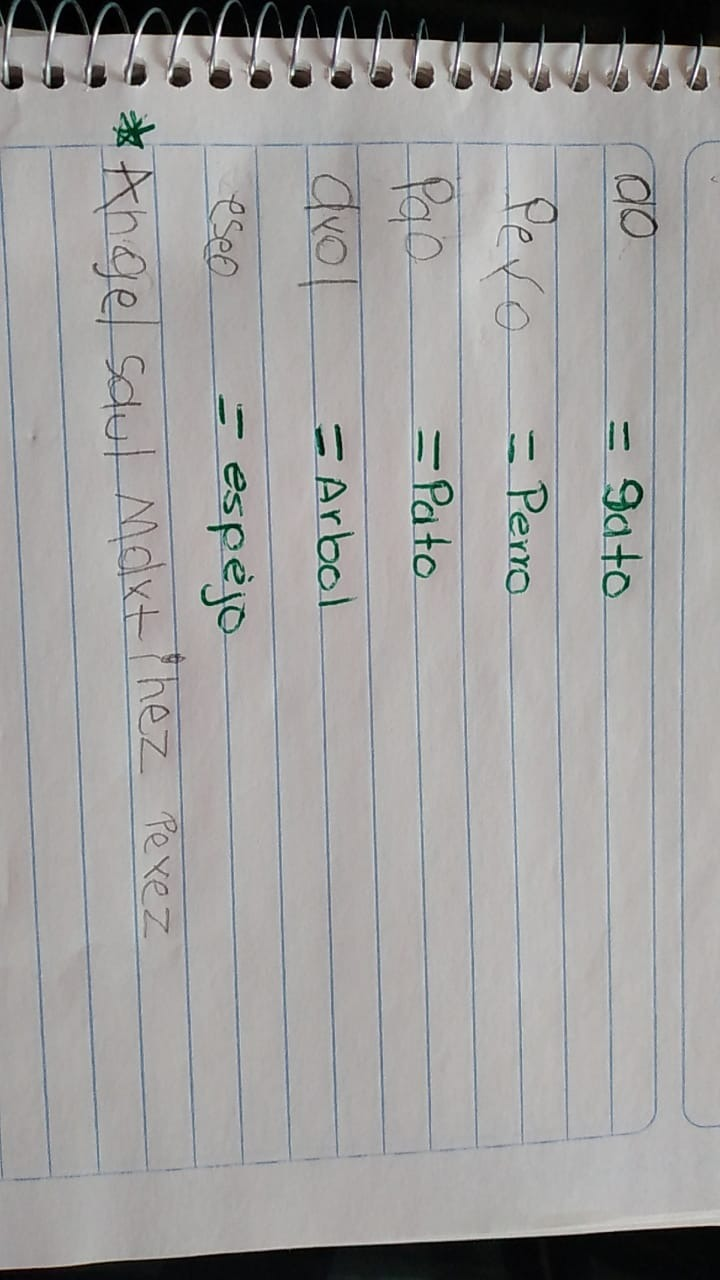 ao = gato
Pero = Perro
Pao = Pato
arol = Arbol
eseo = espejo
* Angel saul Martinez Perez